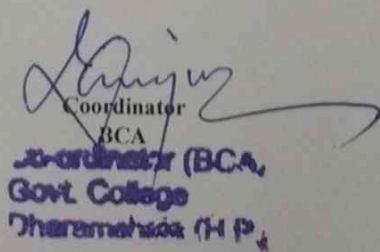 Coordinator
BCA
Co-ordinator (BCA,
Govt. College
Dharamshala (H P.,